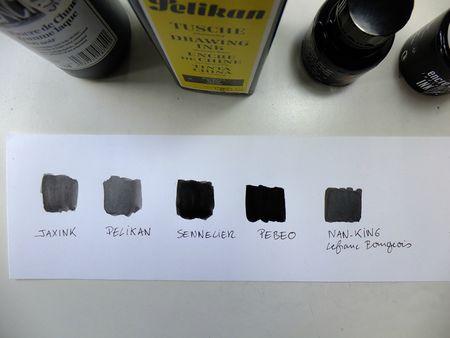 Pelikan
TUSCHE
DRAWING
INK
ENCRE
DE CHINE
TINTA
CHINA
JAXINK
PELIKAN
SENNELIER
PEBEO
NAN-KING
Lefranc Bourgeois